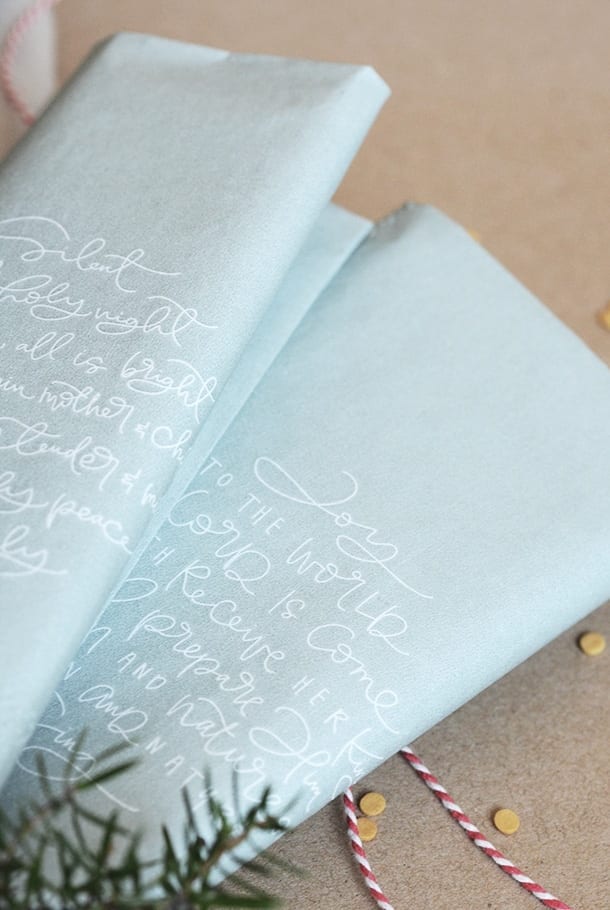 Silent
holy night
all is bright
mother & Ch
tender & m
peace
Joy
TO THE WORLD
LORD IS Come
Receive HER
prepare Him
AND Nature
AND NAT
Sing